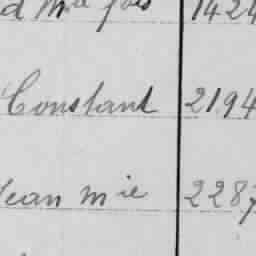 d Mie fois 1424
Constant 2194
Jean Mie 2287